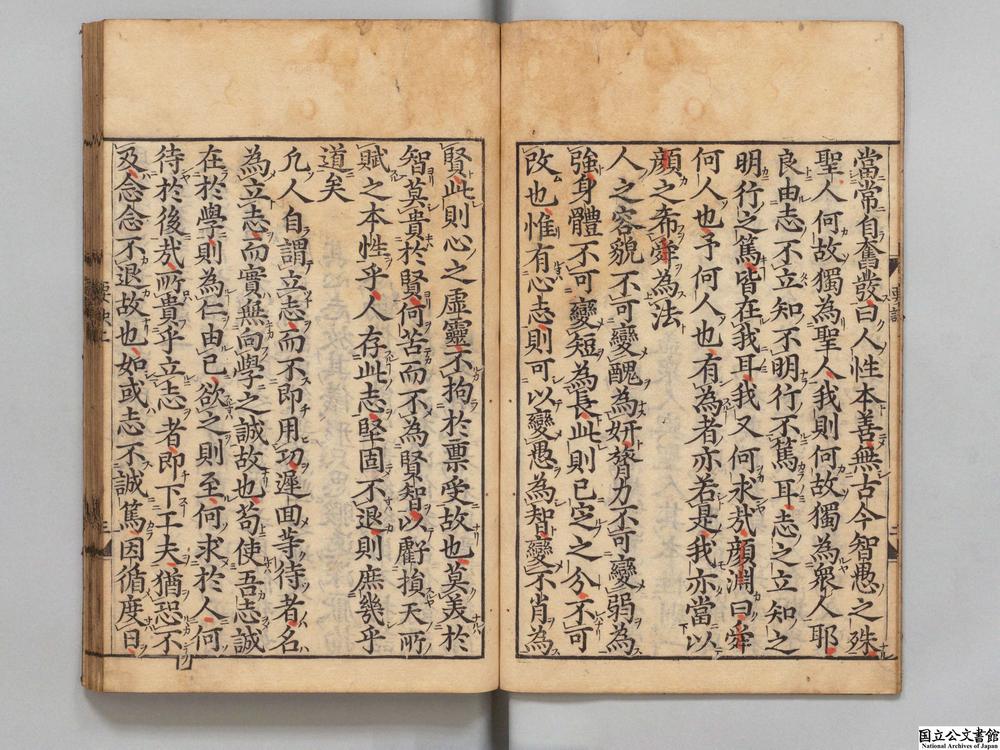 當常自奮發曰人性本善無古今智愚之殊
聖人何故獨為聖人我則何故獨為衆人耶
良由志不立知不明行不篤耳志之立知之
明行之篤皆在我耳我又何求哉顔淵曰舜
何人也予何人也有為者亦若是我亦當以
顔之希舜為法
人之容貌不可變醜為妍膂力不可變弱為
強身體不可變短為長此則已定之分不可
改也惟有心志則可以變愚為智變不肖為
賢此則心之虛靈不拘於稟受故也莫美於
智莫貴於賢何苦而不為賢智以虧損天所
賦之本性乎人存此志堅固不退則庶幾乎
道矣
凡人自謂立志而不即用功遲回等待者名
為立志而實無向學之誠故也苟使吾志誠
在於學則為仁由己欲之則至何求於人何
待於後哉所貴乎立志者即下工夫猶恐不
及念念不退故也如或志不誠篤因循度日
要訣上
国立公文書館
National Archives of Japan